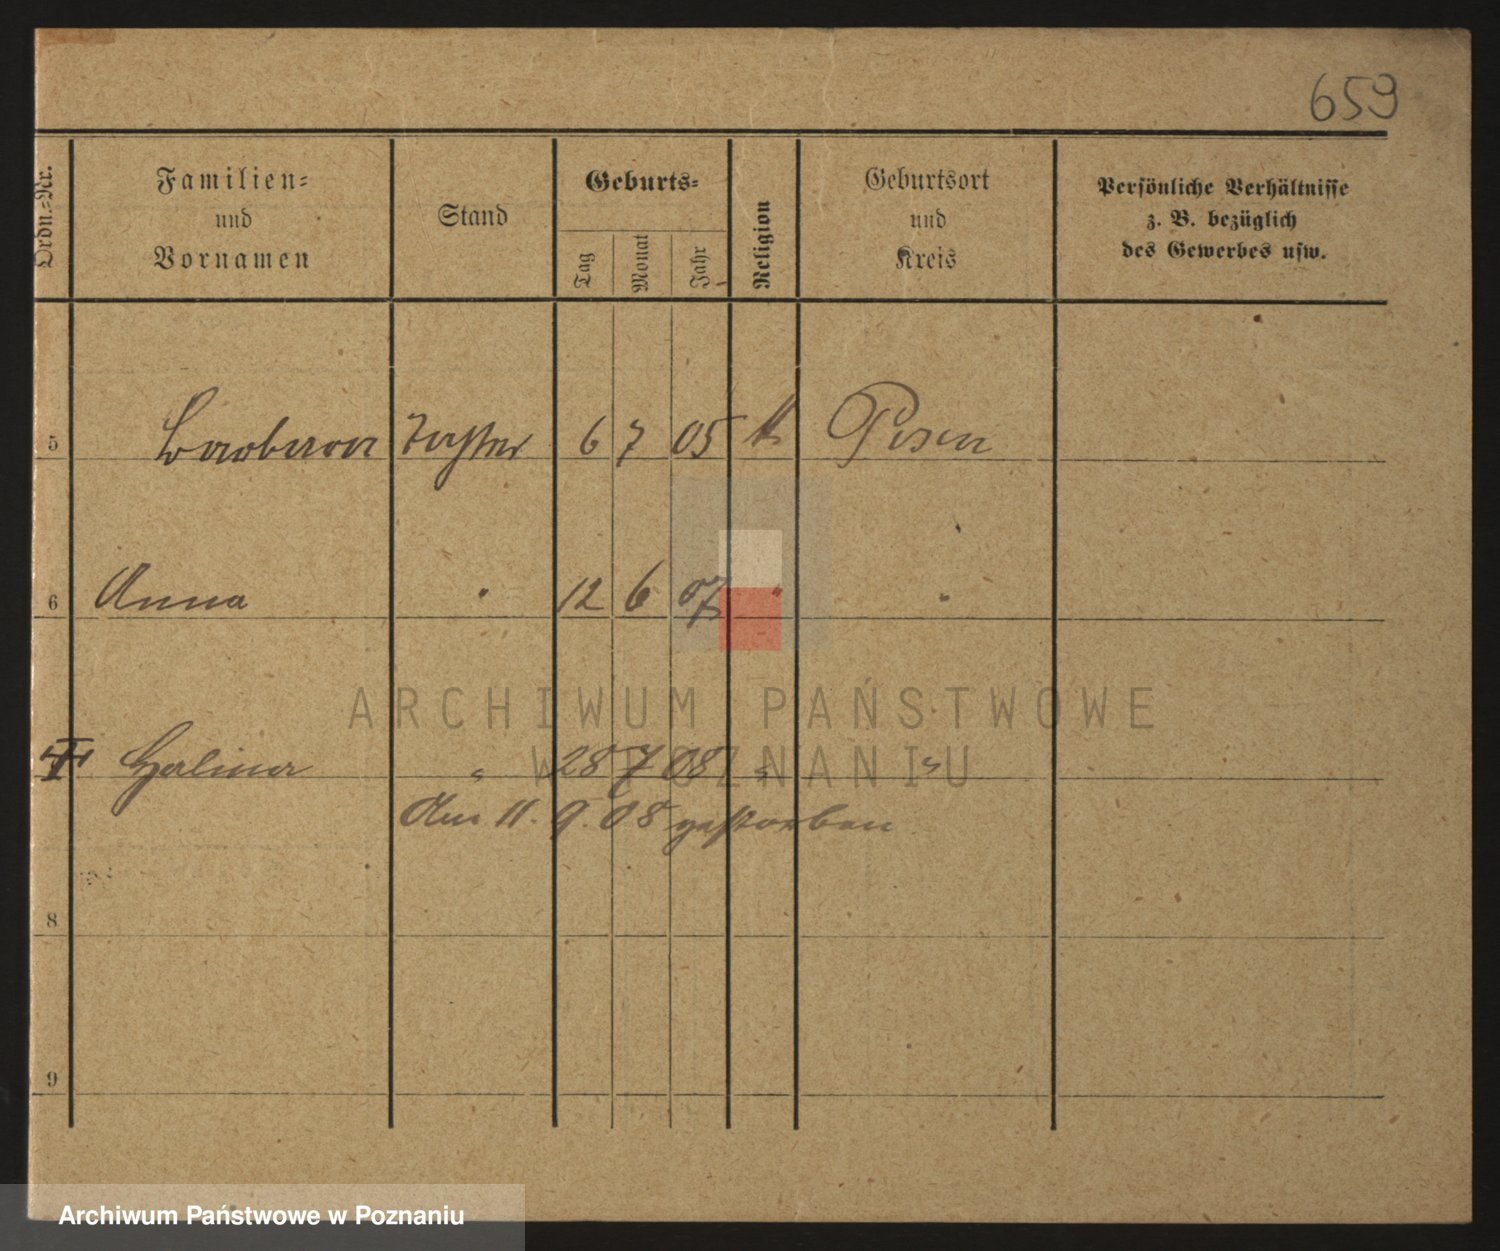 659
Ordn.-Nr.
Familien-
und
Vornamen
Stand
Geburts-
Tag
Monat
Jahr
Religion
Geburtsort
und
Kreis
Persönliche Verhältnisse
z. B. bezüglich
des Gewerbes usw.
5 Barbara Tochter 6 7 05 k Posen
6 Anna " 12 6 07 " "
Halina " 28 7 08 " "
Am 11. 9. 08 gestorben
8
9
ARCHIWUM PAŃSTWOWE
W POZNANIU
Archiwum Państwowe w Poznaniu